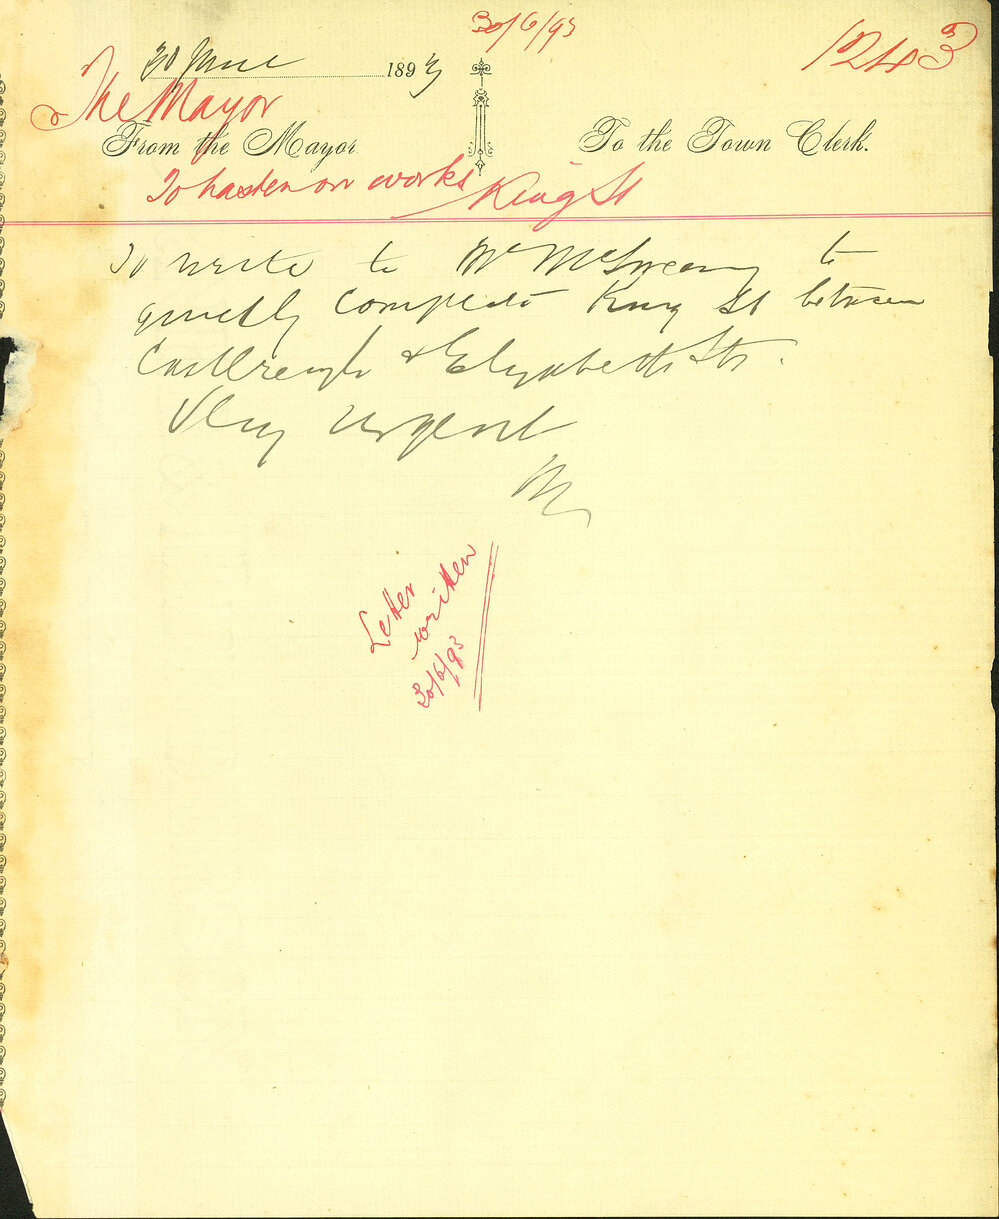 30/6/93
1243
30 June 1893
The Mayor
From the Mayor To the Town Clerk.
To hasten on works King St
To write to Mr McSweeny to
quickly complete King St between
Castlereagh & Elizabeth Sts.
Very urgent
M
Letter
written
30/6/93